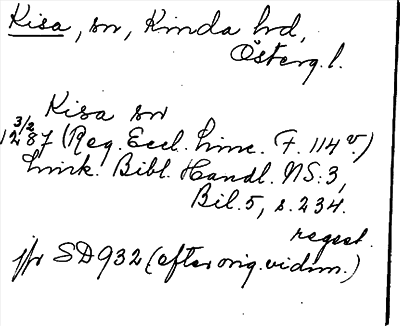 Kisa, sn, Kinda hd,
Österg. l.
Kisa sn
3/2
1287 (Reg. Eccl. Linc. F. 114 v.)
Link. Bibl. Handl. NS: 3,
Bil. 5, s. 234.
regest.
jfr SD 932 (efter orig. vidim.)